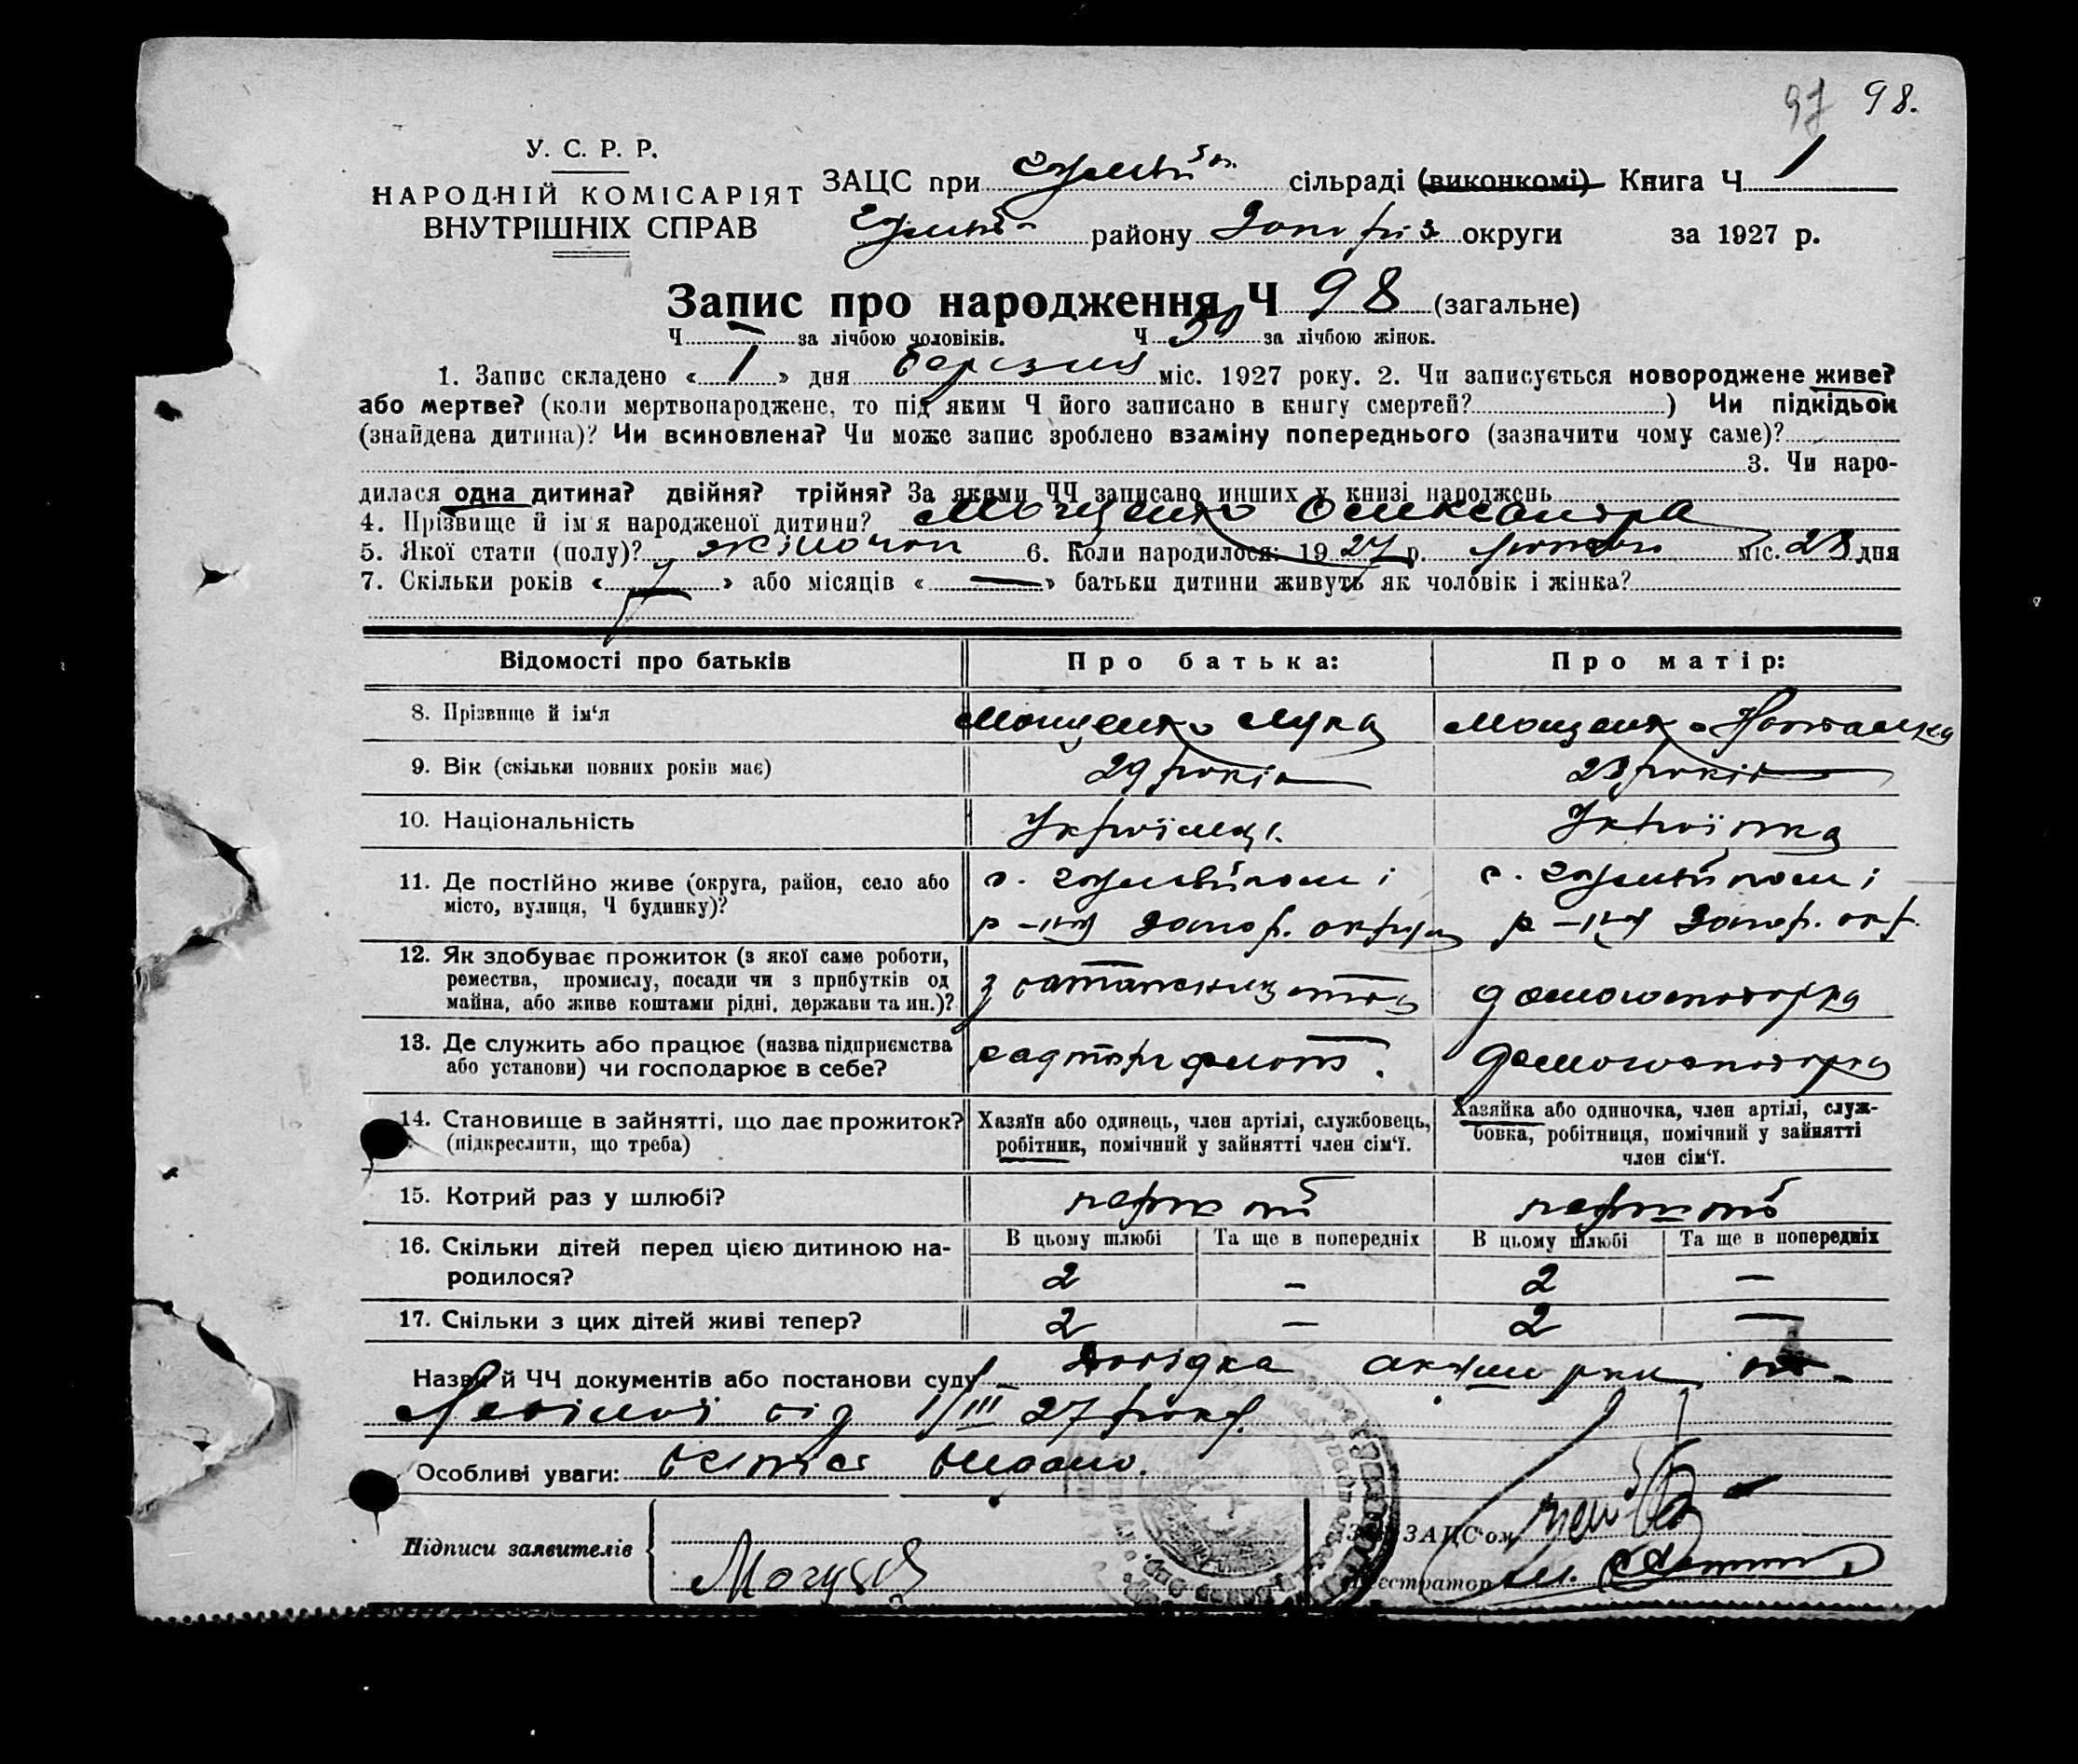 97 98.
У. С. Р. Р.
НАРОДНІЙ КОМІСАРІЯТ
ВНУТРІШНІХ СПРАВ
ЗАЦС при сільраді (виконкомі) Книга Ч 1
району Запоріз. округи за 1927 р.
Запис про народження Ч 98 (загальне)
Ч за лічбою чоловіків. Ч за лічбою жінок.
1. Запис складено « 1 » дня березня міс. 1927 року. 2. Чи записується новороджене живе?
або мертве? (коли мертвонароджене, то під яким Ч його записано в книгу смертей? ) Чи підкідьок
(знайдена дитина)? Чи всиновлена? Чи може запис зроблено взаміну попереднього (зазначити чому саме)?
3. Чи наро-
дилася одна дитина? двійня? трійня? За якими ЧЧ записано инших у книзі народжень
4. Прізвище й ім'я народженої дитини? Мощенко Олександра
5. Якої стати (полу)? жіночої 6. Коли народилося: 1927 р. лютого міс. 23 дня
7. Скільки років « 7 » або місяців « — » батьки дитини живуть як чоловік і жінка?
Відомості про батьків Про батька: Про матір:
8. Прізвище й ім'я Мощенко Лука Мощенко Наталка
9. Вік (скільки повних років має) 29 років 23 років
10. Національність Українець Українка
11. Де постійно живе (округа, район, село або
місто, вулиця, Ч будинку)?
р-ну Запор. округи р-ну Запор. окр.
12. Як здобуває прожиток (з якої саме роботи,
ремества, промислу, посади чи з прибутків од
майна, або живе коштами рідні, держави та ин.)? домогосподарка
13. Де служить або працює (назва підприємства
або установи) чи господарює в себе? домогосподарка
14. Становище в зайнятті, що дає прожиток?
(підкреслити, що треба)
Хазяїн або одинець, член артілі, службовець,
робітник, помічний у зайнятті член сім'ї.
Хазяйка або одиночка, член артілі, служ-
бовка, робітниця, помічний у зайнятті
член сім'ї.
15. Котрий раз у шлюбі? перший перший
16. Скільки дітей перед цією дитиною на-
родилося?
В цьому шлюбі Та ще в попередніх В цьому шлюбі Та ще в попередніх
2 – 2 –
17. Скільки з цих дітей живі тепер? 2 – 2 –
Назви й ЧЧ документів або постанови суду Довідка акушерки
від 1/III 27 року.
Особливі уваги: видано.
Підписи заявителів
Зав. ЗАЦС'ом
Реєстратор